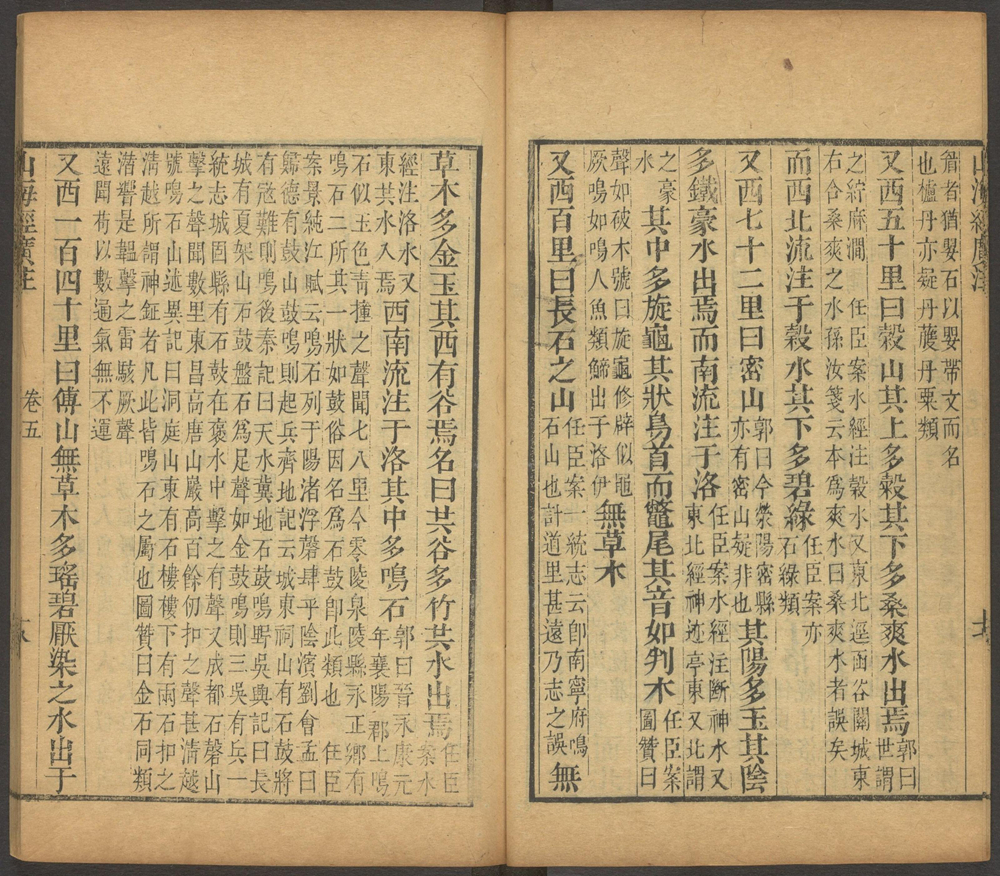 山海經廣注
者猶嬰石以嬰帶文而名
也櫨丹亦疑丹雘丹栗類
又西五十里曰榖山其上多榖其下多桑爽水出焉郭曰世謂
之紵麻澗　任臣案水經注榖水又東北逕函谷關城東
右合桑爽之水孫汝箋云本爲爽水曰桑爽水者誤矣
而西北流注于榖水其下多碧綠任臣案亦石綠類
又西七十二里曰密山郭曰今滎陽密縣亦有密山疑非也其陽多玉其陰
多鐵豪水出焉而南流注于洛任臣案水經注斷神水又東北經神迹亭東又北謂
之豪水其中多旋龜其狀鳥首而鼈尾其音如判木任臣案圖贊曰
聲如破木號曰旋龜修辟似黽厥鳴如鳴人魚類鯑出于洛伊無草木
又西百里曰長石之山任臣案一統志云卽南寧府鳴石山也計道里甚遠乃志之誤無
草木多金玉其西有谷焉名曰共谷多竹共水出焉任臣案水
經注洛水又東共水入焉西南流注于洛其中多鳴石郭曰晉永康元年襄陽郡上鳴
石似玉色青撞之聲聞七八里今零陵泉陵縣永正鄉有
鳴石二所其一狀如鼓俗因名爲石鼓卽此類也　任臣
案景純江賦云鳴石列于陽渚浮磬肆乎陰濱劉會孟曰
歸德有鼓山鼓鳴則起兵齊地記云城東祠山有石鼓將
有寇難則鳴後秦記曰天水冀地石鼓鳴野吳興記曰長
城有夏架山石鼓盤石爲足聲如金鼓鳴則三吳有兵一
統志城固縣有石鼓在褒水中擊之有聲又成都石磬山
擊之聲聞數里東昌高唐山巖高百餘仞扣之聲甚清越
號鳴石山述異記曰洞庭山東有石樓樓下有兩石扣之
清越所謂神鉦者凡此皆鳴石之屬也圖贊曰金石同類
潛響是韞擊之雷駭厥聲
遠聞苟以數通氣無不運
又西一百四十里曰傅山無草木多瑤碧厭染之水出于
山海經廣注　卷五